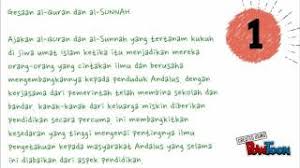 Gesaan al-Quran dan al-SUNNAH
1
Ajakan al-Quran dan al-Sunnah yang tertanam kukuh
di jiwa umat Islam ketika itu menjadikan mereka
orang-orang yang cintakan ilmu dan berusaha
mengembangkannya kepada penduduk Andalus, dengan
kerjasama dari pemerintah telah membina sekolah dan
bandar kanak-kanak dari keluarga miskin diberikan
pendidikan secara percuma. ini membangkitkan
kesedaran yang tinggi mengenai pentingnya ilmu
pengetahuan kepada masyarakat Andalus yang selama
ini diabaikan dari aspek pendidikan
CREATED USING
POWTOON